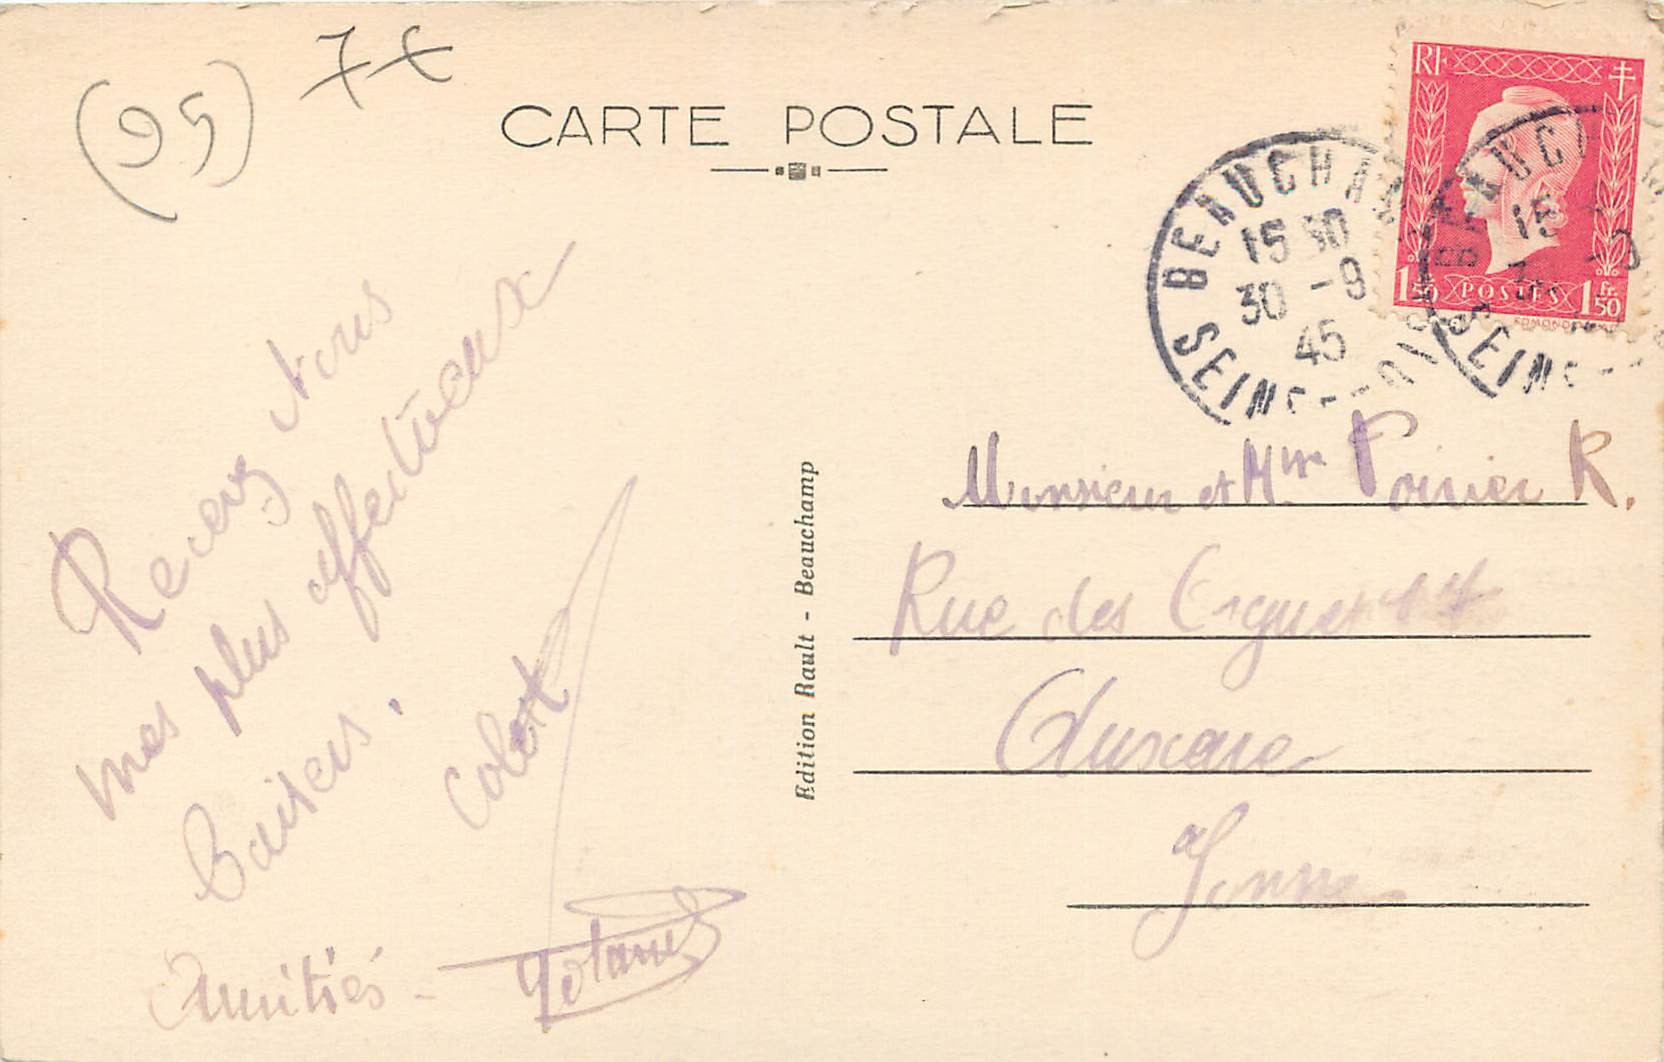 (95) 7€
CARTE POSTALE
RF
1,50 POSTES 1 Fr. 50
BEAUCHAMP
15 30
30 -9
45
SEINE-&-OISE
Recevez Nous
mes plus affectueux
Baisers.
Colett
Amitiés -
Edition Rault - Beauchamp
Monsieur et Mme Poirier R.
Rue des
Auxerre
Yonne